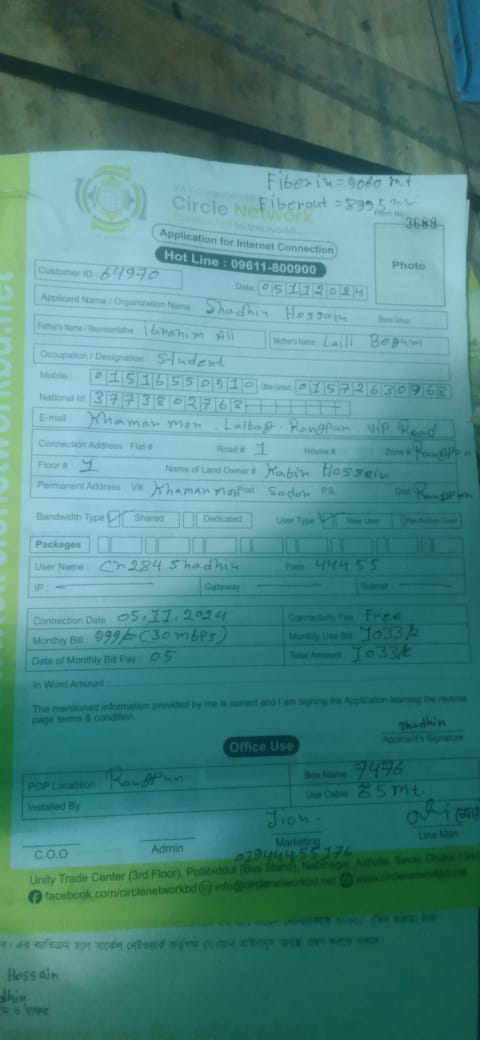 Fiber in = 9060 mt
NATIONWIDE ISP
Circle Network
Fiber out = 8995 mt
to the world...
Form No 3689
Application for Internet Connection
Hot Line : 09611-800900
Photo
Customer ID : 64970
Date: 05112024
Applicant Name / Organization Name : Shadhin Hossain
Father's Name / Representative Ibrahim Ali Mother's Name : Laili Begum
Occupation / Designation : Student
Mobile : 01516550510 01572630968
National Id: 3773802768
E-mail Khaman mon. Lalbag. Rangpur. vip Road
Connection Address : Flat # Road # 1 House # Zone # Rangpur
Floor # 1 Name of Land Owner # Kabir Hossein
Permanent Address : Vill Khaman mon Post Sador P.S. Dist Rangpur
Bandwidth Type Shared Dedicated User Type New User
Packages
User Name : Cr284 Shadhin Pass : 44455
IP : Gateway Subnet
Connection Date : 05,11,2024 Connectivity Fee : Free
Monthly Bill : 999/= (30 mbps) Monthly Use Bill 1033/=
Date of Monthly Bill Pay : 05 Total Amount : 1033/=
In Word Amount
The mentioned information provided by me is correct and I am signing the Application learning the reverse
page terms & condition.
Shadhin
Applicant's Signature
Office Use
POP Location : Rangpur Box Name 7476
Installed By Use Cable 85 mt
C.O.O Admin Marketing Line Man
01944455176
Unity Trade Center (3rd Floor), Pollibiddut (Bus Stand), Nabinagar, Ashulia, Savar, Dhaka
facebook.com/circlenetworkbd info@circlenetworkbd.net www.circlenetworkbd.net
Hossain